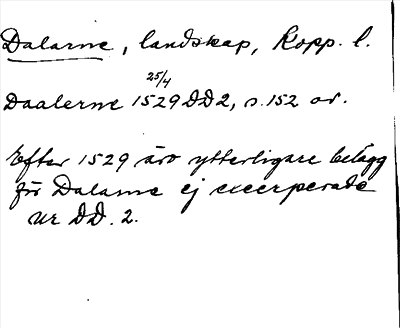 Dalarne, landskap, Kopp. l.
25/4
Daalerne 1529 DD 2, s. 152 or.
Efter 1529 äro ytterligare belägg
för Dalarne ej excerperade
ur DD. 2.